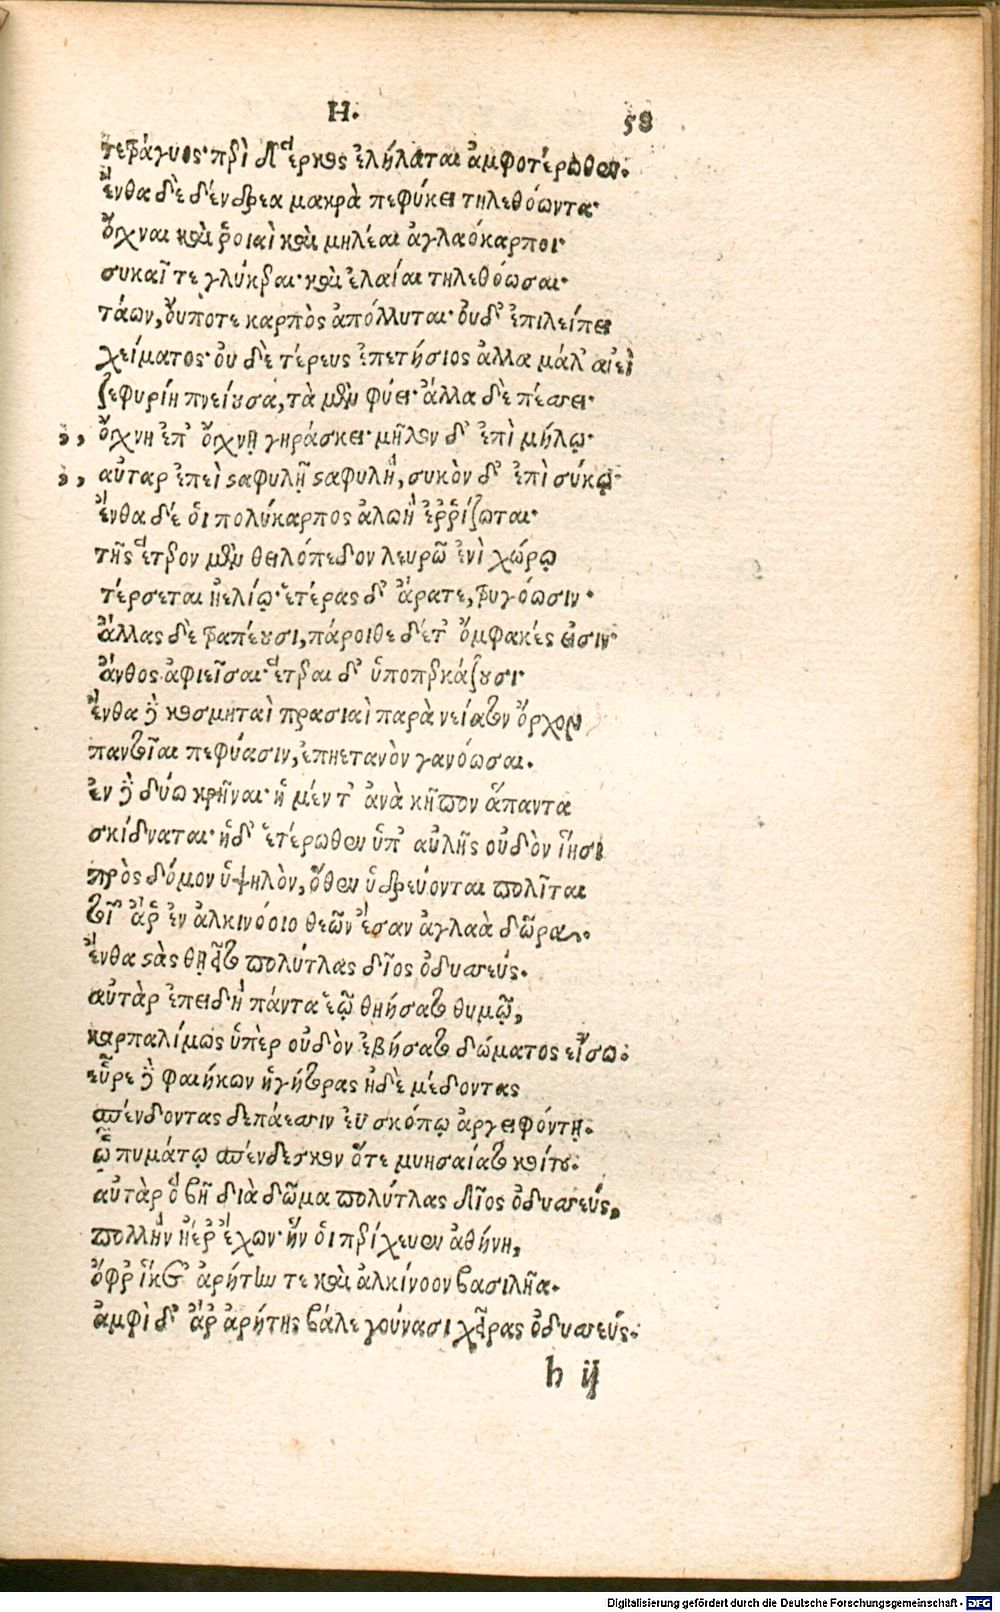 Η.
58
τετράγυος· περὶ δ' ἕρκος ἐλήλαται ἀμφοτέρωθεν.
ἔνθα δὲ δένδρεα μακρὰ πεφύκει τηλεθόωντα·
ὄχναι καὶ ῥοιαὶ καὶ μηλέαι ἀγλαόκαρποι·
συκαῖ τε γλύκεραι· καὶ ἐλαίαι τηλεθόωσαι·
τάων, οὔποτε καρπὸς ἀπόλλυται· οὐδ' ἐπιλείπει
χείματος· οὐ δὲ τέρευς ἐπετήσιος ἀλλα μάλ' αἰεὶ
ζεφυρίη πνείουσα, τὰ μὲν φύει· ἄλλα δὲ πέσσει·
,, ὄχνη ἐπ' ὄχνῃ γηράσκει· μῆλον δ' ἐπὶ μήλῳ·
,, αὐταρ ἐπεὶ σταφυλῇ σταφυλὴ, συκὸν δ' ἐπὶ σύκῳ·
ἔνθα δέ ὁι πολύκαρπος ἀλωὴ ἐῤῥίζωται·
τῆς ἕτερον μὲν θειλόπεδον λευρῶ ἐνὶ χώρῳ
τέρσεται ἠελίῳ· ἑτέρας δ' ἄρατε, τρυγόωσιν·
ἄλλας δὲ τραπέουσι, πάροιθε δέτ' ὄμφακές εἰσιν·
ἄνθος ἀφιεῖσαι· ἕτεραι δ' ὑποπερκάζουσι·
ἔνθα δὲ κοσμηταὶ πρασιαὶ παρὰ νείατον ὄρχον
παντοῖαι πεφύασιν, ἐπηετανὸν γανόωσαι.
ἐν δὲ δύω κρῆναι· ἡ μέν τ' ἀνὰ κῆπον ἅπαντα
σκίδναται· ἡδ' ἑτέρωθεν ὑπ' αὐλῆς οὐδὸν ἵησι
πρὸς δόμον ὑψηλὸν, ὅθεν ὑδρεύονται πολῖται
τοῖ' ἄρ' ἐν ἀλκινόοιο θεῶν ἔσαν ἀγλαὰ δῶρα.
ἔνθα στὰς θηεῖτο πολύτλας δῖος ὀδυσσεύς.
αὐτὰρ ἐπειδὴ πάντα ἑῷ θηήσατο θυμῷ,
καρπαλίμως ὑπὲρ οὐδὸν ἐβήσατο δώματος εἴσω.
εὗρε δὲ φαιήκων ἡγήτορας ἠδὲ μέδοντας
σπένδοντας δεπάεσσιν ἐυ σκόπῳ ἀργειφόντῃ.
ᾧ πυμάτῳ σπένδεσκον ὅτε μνησαίατο κοίτου.
αὐτὰρ ὃ βῆ διὰ δῶμα πολύτλας δῖος ὀδυσσεύς,
πολλὴν ἠέρ' ἔχων· ἥν ὁι περίχευεν ἀθήνη,
ὄφρ' ἵκετ' ἀρήτην τε καὶ ἀλκίνοον βασιλῆα.
ἀμφὶ δ' ἄρ' ἀρήτης βάλε γούνασι χεῖρας ὀδυσσεύς.
h ij
Digitalisierung gefördert durch die Deutsche Forschungsgemeinschaft - DFG